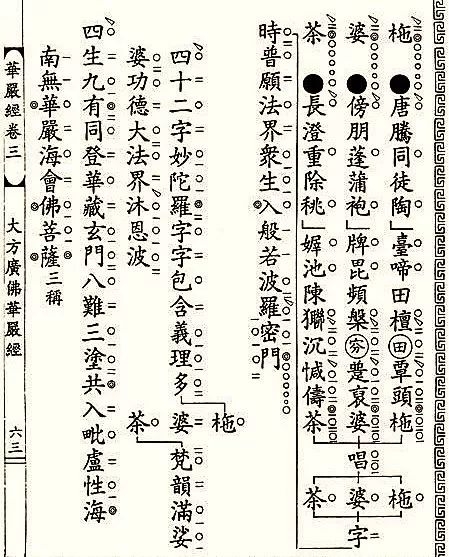 柂●唐騰同徒陶」臺啼田檀田覃頭柂
婆●傍朋蓬蒲袍」牌毘頻槃裒婆
茶●長澄重除祧」墀池陳沉儔茶
唱
柂
婆
茶
字
時普願法界眾生入般若波羅密門
四十二字妙陀羅字字包含義理多
柂
婆
茶
梵韻滿娑
婆功德大法界沐恩波
四生九有同登華藏玄門八難三塗共入毗盧性海
南無華嚴海會佛菩薩三稱
【華嚴經卷三】大方廣佛華嚴經 六三